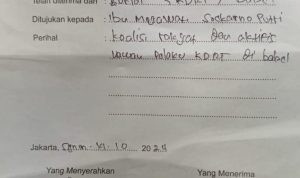 Telah diterima dari :
Ditujukan kepada : Ibu Megawati Soekarno Putri
Perihal : Koalisi rakyat dan aktivis
lawan pelaku KDRT di
Jakarta, 10 2024
Yang Menyerahkan Yang Menerima